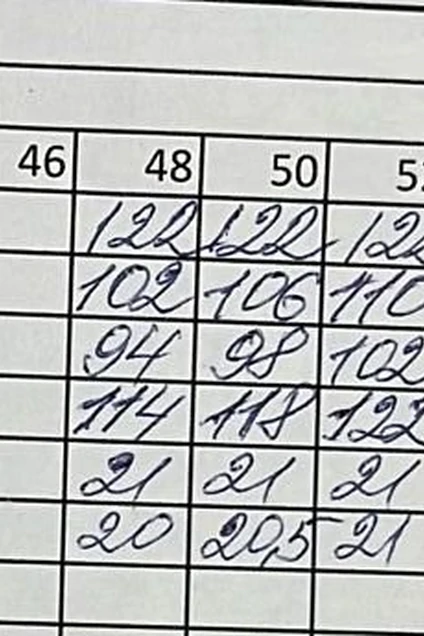 46 48 50 52
122 122 122
102 106 110
94 98 102
114 118 122
21 21 21
20 20,5 21